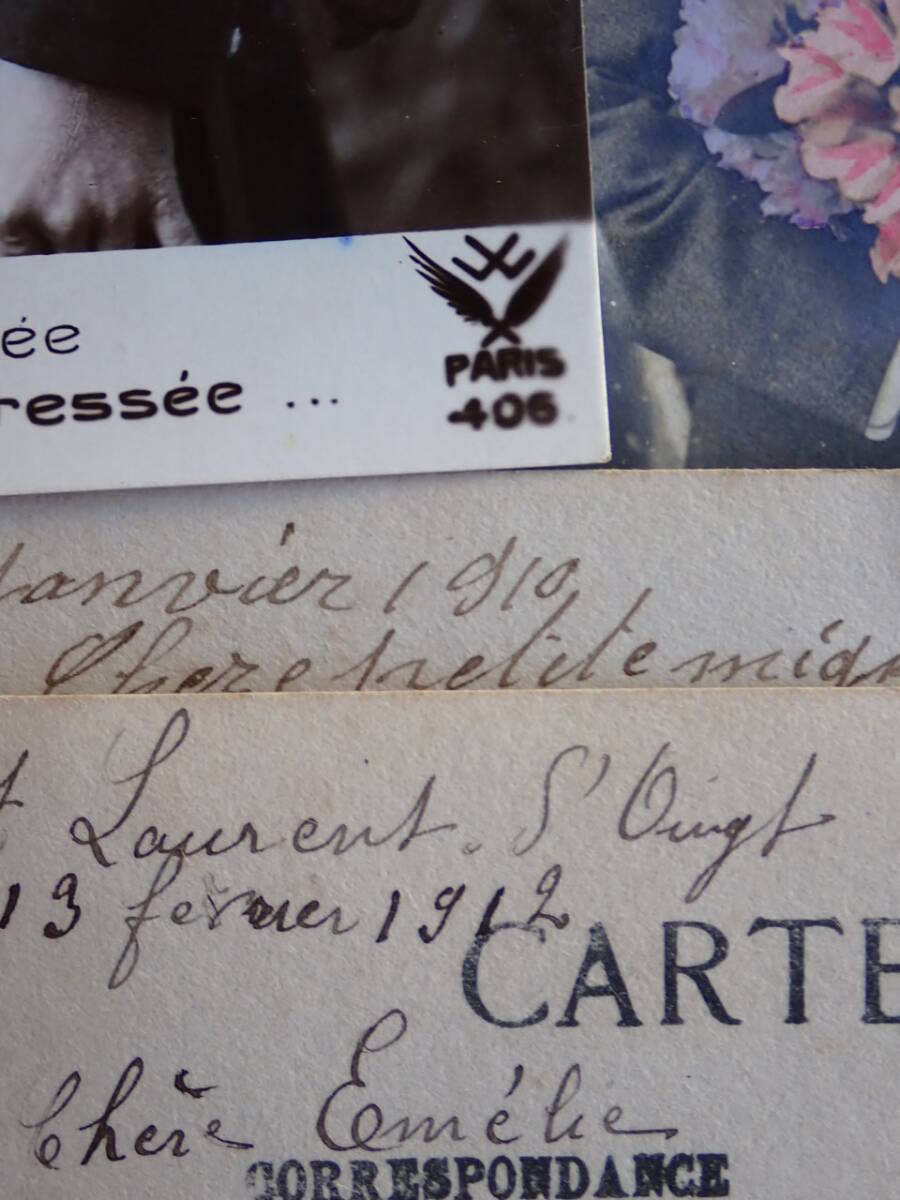 ée
ressée ...
PARIS
406
Janvier 1910
Chere petite mign
t Laurent. d'Oingt
13 fevrier 1912
CARTE
Chère Emélie
CORRESPONDANCE